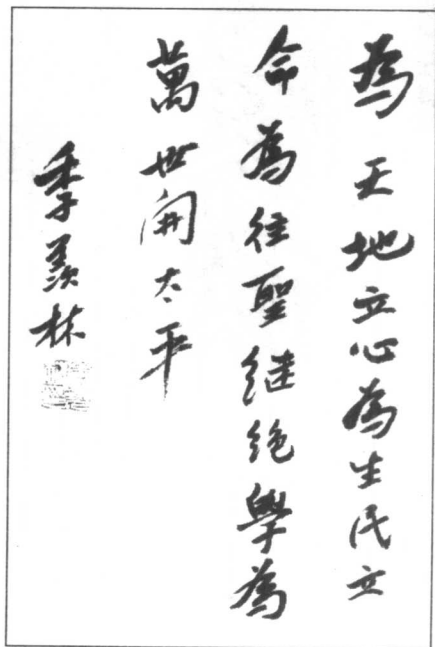 為天地立心為生民立
命為往聖继绝學為
萬世開太平
季羨林